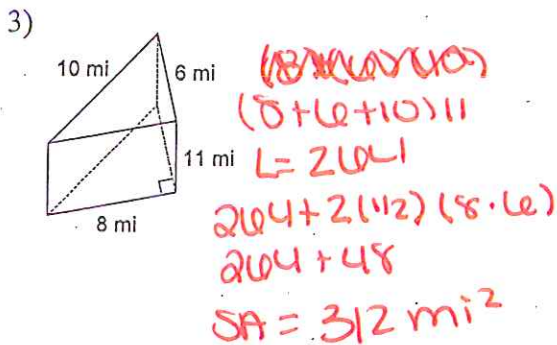 3)
10 mi
6 mi
11 mi
8 mi
(8+6+10)11
L=264
264+2(1/2)(8·6)
264+48
SA = 312 mi²